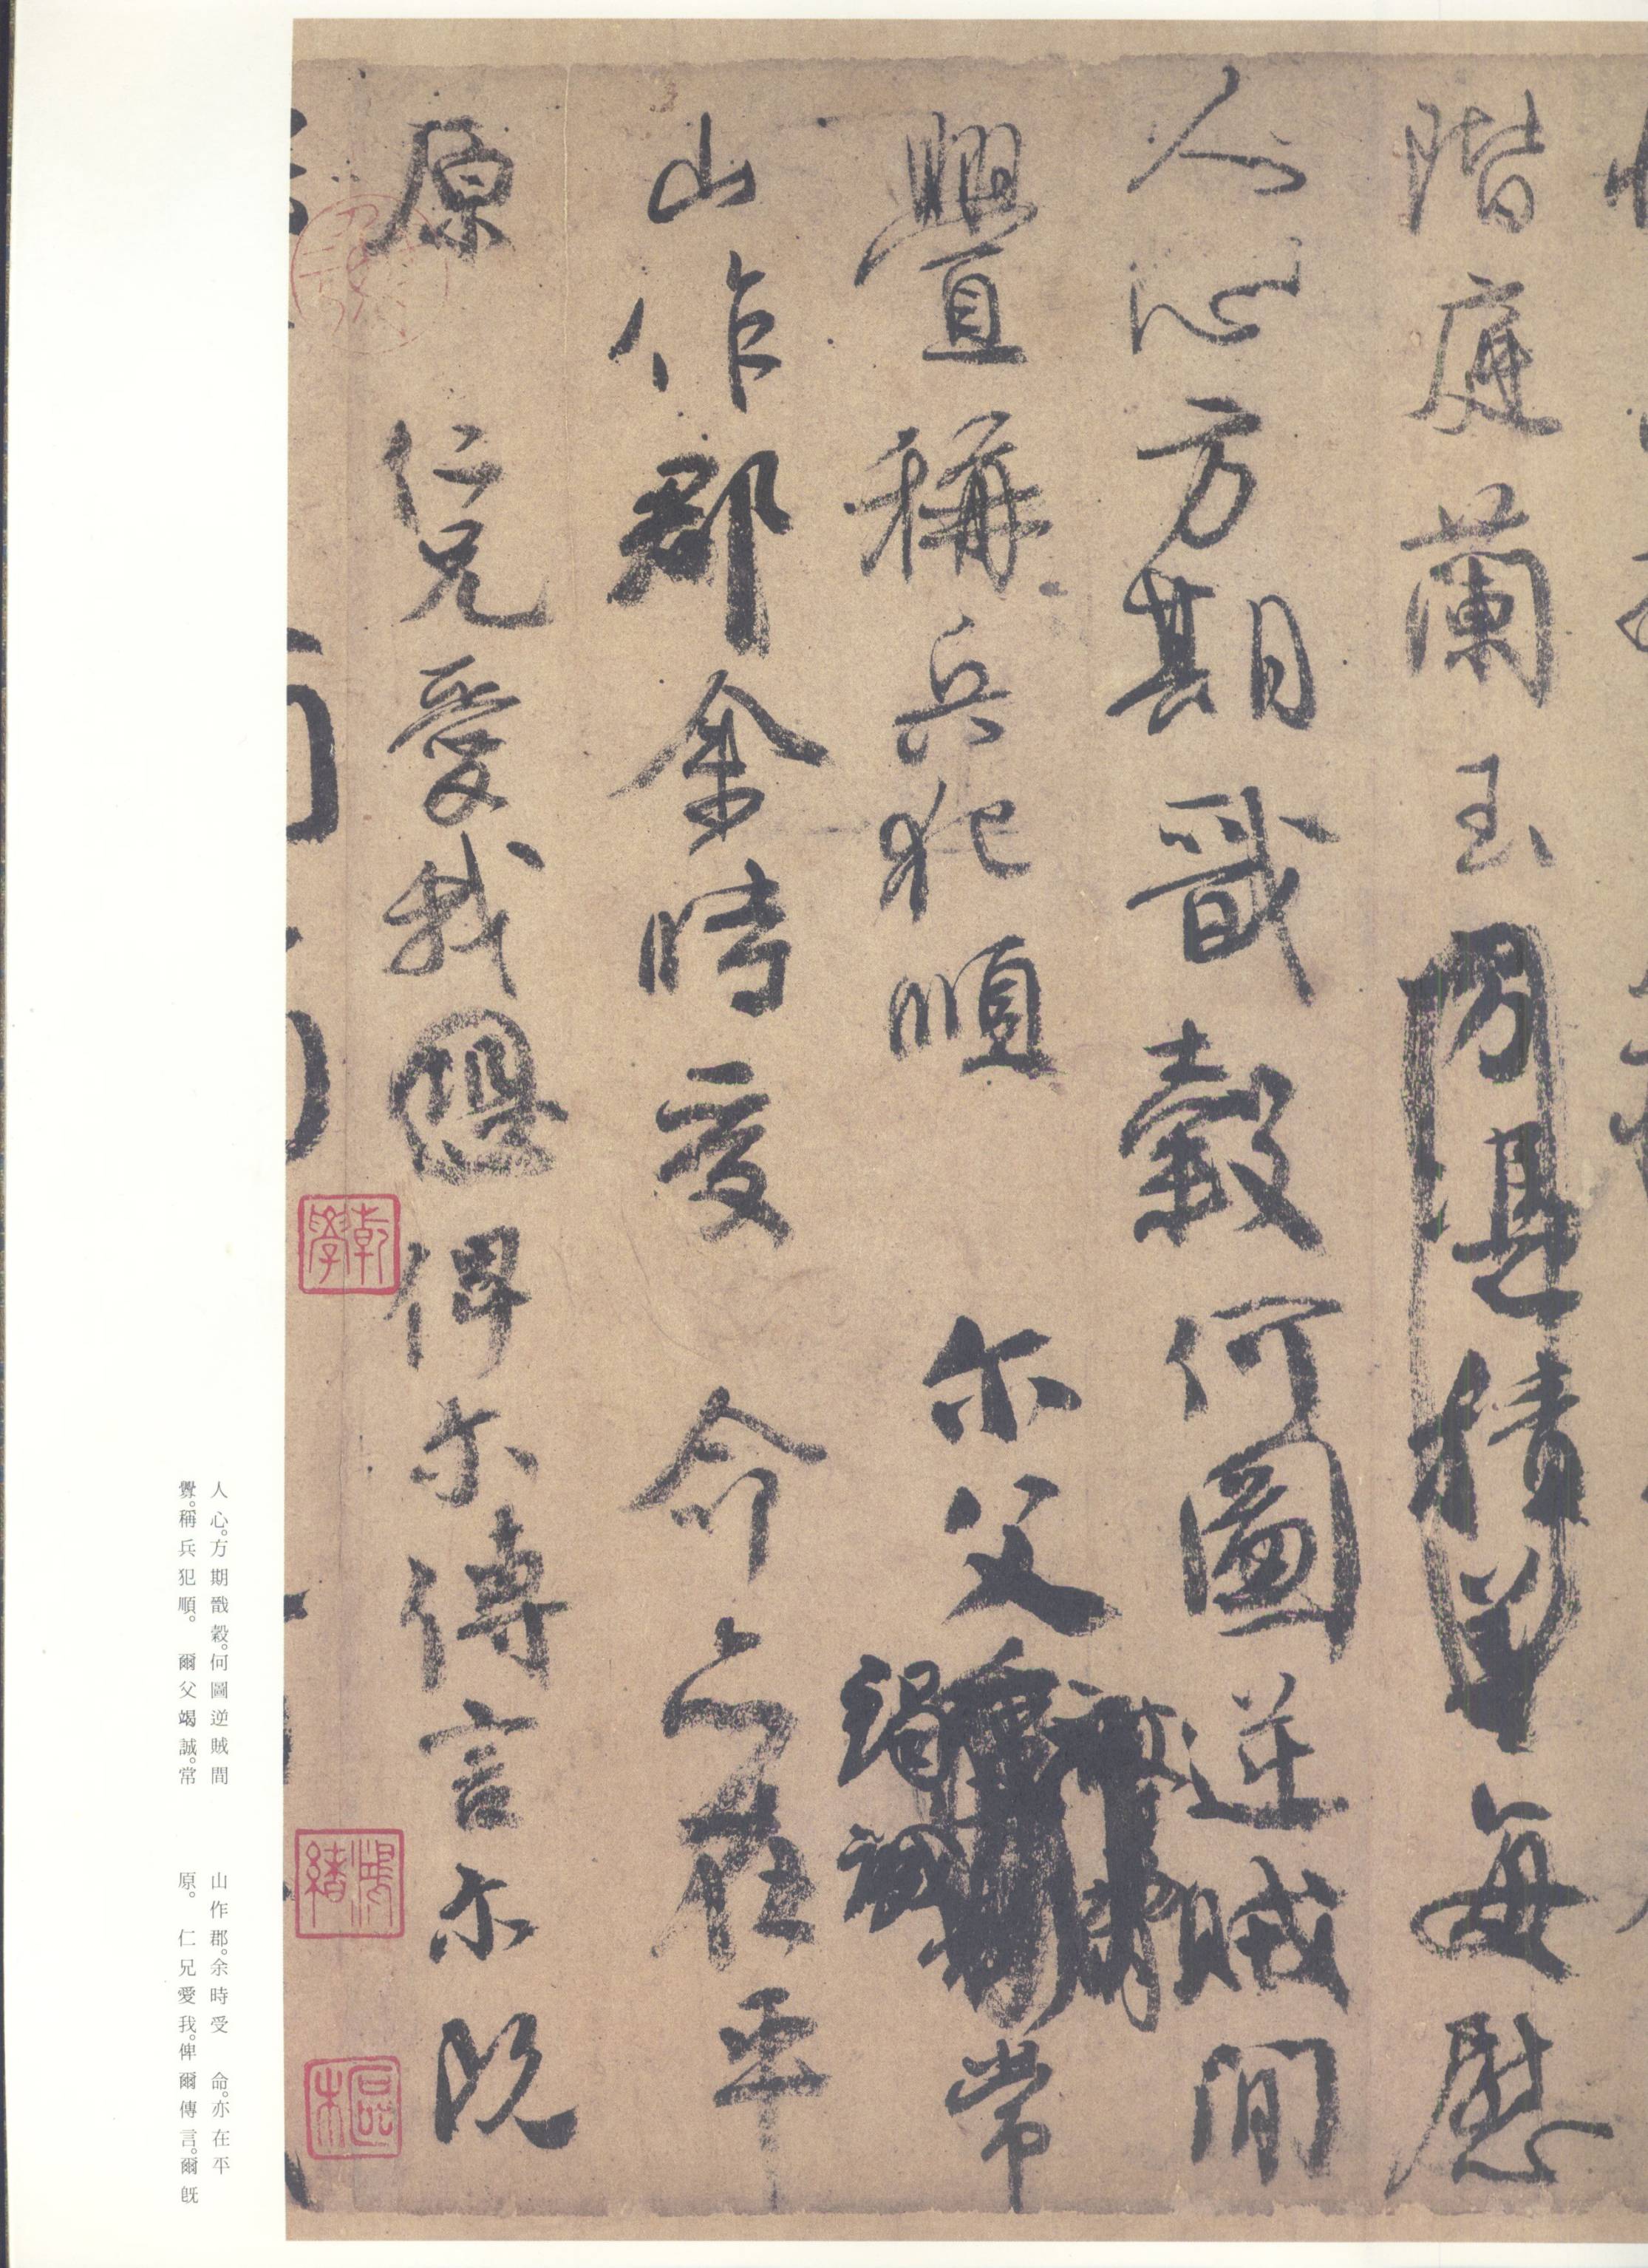 階庭蘭玉每慰
人心方期戬穀何圖逆賊間
舋稱兵犯順尔父竭誠常
山作郡余時受命亦在平
原仁兄愛我俾尔傳言尔既
乾學
鴻緒
人心。方期戬穀。何圖逆賊間
釁。稱兵犯順。爾父竭誠。常
山作郡。余時受命。亦在平
原。仁兄愛我。俾爾傳言。爾既